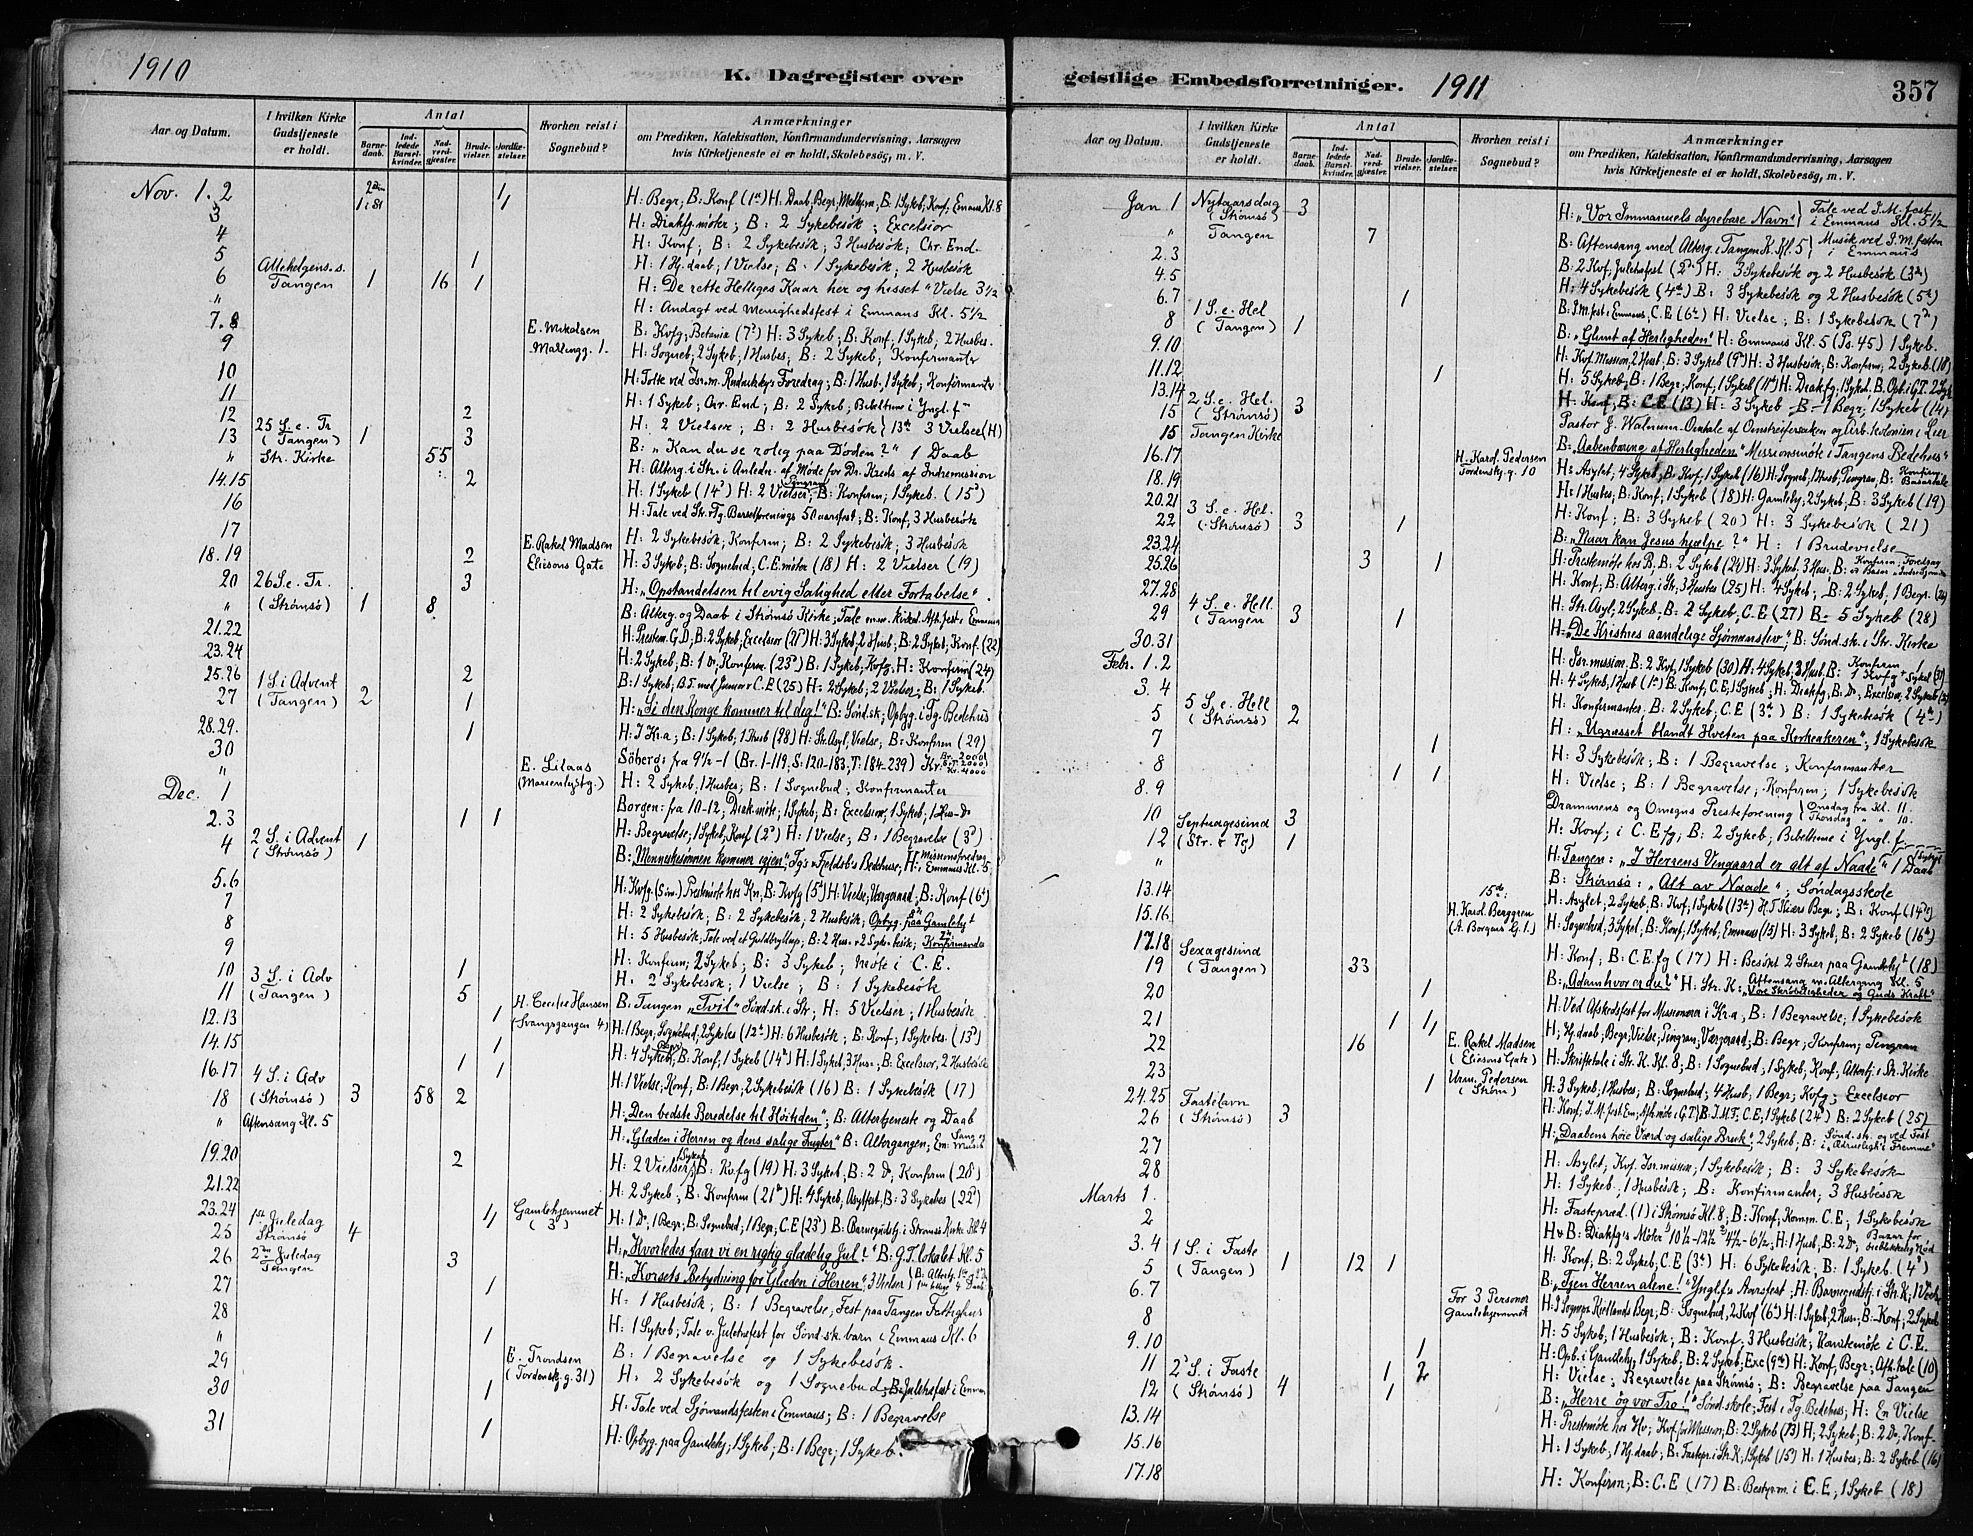 1910
K. Dagregister over
Aar og Datum.
I hvilken Kirke Gudstjeneste er holdt.
Antal
Barnedaab.
Indledede Barselkvinder.
Nadverdgjæster.
Brudevielser.
Jordfæstelser.
Hvorhen reist i Sognebud?
Anmærkninger
om Prædiken, Katekisation, Konfirmandundervisning, Aarsagen
hvis Kirketjeneste ei er holdt, Skolebesøg, m. V.
Nov. 1. 2
H: Begr; B: Konf (1ste) H: Daab, Begr, B: 1 Sykeb, Konf, Emaus Kl. 8
3 H: Diakfg. møter; B: 2 Sykebesøk; Excelsior
4 H: Konf; B: 2 Sykebesøk; 3 Husbesøk; Chr. End.
5 1 H: 1 Hj. daab; 1 Vielse; B: 1 Sykebesøk, 2 Husbesøk
6 Allehelgens. s. Tangen 1 16 1 H: De rette Helliges Kaar her og hisset" Vielse 3½
" H: Andagt ved Menighedsfest i Emmaus Kl. 5½
7. 8 E. Mikalsen B: Kvfg; Betania (7de) H: 3 Sykeb; B: Konf, 1 Sykeb, 2 Husbes.
9 H: Sogneb; 2 Sykeb, 1 Husbes; B: 2 Sykeb, Konfirmanter
10 H: Tolk ved Isr. m. Foredrag; B: 1 Husb, 1 Sykeb, Konfirmanter
11 H: 1 Sykeb; Chr. End; B: 2 Sykeb; Bibeltime i Yngl. f.
12 2 H: 2 Vielser; B: 2 Husbesøk } 13de 3 Vielser (H)
13 25 S. e. Tr. (Tangen) 1 3 B: „Kan du se rolig paa Døden?" 1 Daab
" Str. Kirke 55 H: Alterg. i Str. i Anledn. af Møde for Dr. Kreds af Indremission
14. 15 2 H: 1 Sykeb (14de) H: 2 Vielser, B: Konfirm; 1 Sykeb. (15de)
16 H: Tale ved Str. & Tg. Barselforenings 50 aarsfest; B: Konf, 3 Husbesøk
17 E. Rakel Madsen H: 2 Sykebesøk; Konfirm; B: 2 Sykebesøk; 3 Husbesøk
18. 19 Eliesons Gate 2 H: 3 Sykeb; B: Sognebud, C. E. møter (18) H: 2 Vielser (19)
20 26 S. e. Tr. 3 H: „Opstandelsen til evig Salighed eller Fortabelse".
" (Strømsø) 1 8 B: Alterg. og Daab i Strømsø Kirke; Tale Afh. fest i Emmaus
21. 22 H: Prestem. G. D; B: 2 Sykeb, Excelsior (21de) H: 3 Sykeb, 2 Husb, B: 2 Sykeb, Konf. (22)
23. 24 H: 2 Sykeb; B: 1 Konfirm. (23de) B: 1 Sykeb, Kvfg; H: Konfirm (24)
25. 26 2 B: 1 Sykeb; B. T. med Junior C. E (25) H: 2 Sykeb; 2 Vielser; B: 1 Sykeb.
27 1 S. i Advent (Tangen) 2 1 H: „Se den Konge kommer til dig!" B: Sønd. sk; Opbyg. i Tg. Bedehus
28. 29. 1 H: I Kr.a; B: 1 Sykeb, 1 Husb (28) H: Str. Asyl, Vielse; B: Konfirm (29)
30 Söberg: fra 9½-1 (Br. 1-119, S: 120-183, T: 184-239)
" E. Lilaas H: 2 Sykeb, 1 Husbes; B: 1 Sognebud, Konfirmanter
Dec. 1 (Marienlystg.) Borgen: fra 10-12; Diak. møte; 1 Sykeb; B: Excelsior, 1 Sykeb,
2. 3 1 1 H: Begravelse, 1 Sykeb, Konf (2de) H: 1 Vielse; B: 1 Begravelse (3de)
4 2 S. i Advent (Strømsø) 1 B: „Menneskesønnen kommer igjen" Tg's & Fjeldsb's Bedehuse; H: Missionsforedrag i Emmaus Kl. 5.
5. 6 H: Kvfg. (Sem.) Prestemøte hos Kn. B: Kvfg (5te) H: Vielse, B: Konf (6te)
7 H: 2 Sykebesøk; B: 2 Sykebesøk, 2 Husbesøk, Opbyg. paa Gamlehj.
8 H: 5 Husbesøk; Tale ved et Guldbryllup; B: 2 Hus- & 2 Syke-besøk; Konfirmander
9 H: Konfirm; 2 Sykeb; B: 3 Sykeb; Møte i C. E.
10 1 H: 2 Sykebesøk; 1 Vielse; B: 1 Sykebesøk
11 3 S. i Adv (Tangen) 5 H. Cecilie Hansen B: Tangen „Tvil" Sønd. sk. i Str; H: 5 Vielser; 1 Husbesøk
12. 13 (Svangsgangen 4) 1 H: 1 Begr; Sognebud, 2 Sykebes (12te) H: 6 Husbesøk; B: Konf; 1 Sykebes. (13de)
14. 15 1 H: 4 Sykeb; B: Konf, 1 Sykeb (14de) H: 1 Sykeb, 3 Hus-; B: Excelsior, 2 Husbesøk
16. 17 1 1 H: 1 Vielse, Konf, B: 1 Begr; 2 Sykebesøk (16) B: 1 Sykebesøk (17)
18 4 S. i Adv (Strømsø) 3 58 2 H: „Den bedste Beredelse til Høitiden"; B: Altertjeneste og Daab
" Aftensang Kl. 5 H: „Glæden i Herren og dens salige Frugter" B: Altergangen, Em: Sang & Musik
19. 20 2 H: 2 Vielser, B: Kvfg (19) H: 3 Sykeb, B: 2 Do, Konfirm (20)
21. 22 H: 2 Sykeb; B: Konfirm (21de) H: 4 Sykeb, Asylfest, B: 3 Sykebes (22de)
23. 24 Gamlehjemmet (3) H: 1 Do, 1 Begr; B: Sognebud; 1 Begr; C. E (23de) B: Barnegudstj. i Strømsø Kirke Kl. 4
25 1ste Juledag Strømsø 4 H: „Hvorledes faar vi en rigtig glædelig Jul?" B: G. T. lokalet Kl. 5
26 2den Juledag Tangen 3 H: „Korsets Betydning for Glæden i Herren", 3 Vielser
27 1 H: 1 Husbesøk; B: 1 Begravelse, Fest paa Tangen Fattighus
28 H: 1 Sykeb; Tale v. Julehfest for Sønd. sk. barn i Emmaus Kl. 6
" 1 B: 1 Begravelse og 1 Sykebesøk.
29 E. Trondsen (Tordensk. g. 31) H: 2 Sykebesøk og 1 Sognebud; B: Julehfest i Emmaus
30 1 H: Tale ved Sjømandsfesten i Emmaus; B: 1 Begravelse
31 1 H: Opbyg. paa Gamlehj; 1 Sykeb, B: 1 Begr; 1 Sykeb.
geistlige Embedsforretninger.
1911
357
Aar og Datum.
I hvilken Kirke Gudstjeneste er holdt.
Antal
Barnedaab.
Indledede Barselkvinder.
Nadverdgjæster.
Brudevielser.
Jordfæstelser.
Hvorhen reist i Sognebud?
Anmærkninger
om Prædiken, Katekisation, Konfirmandundervisning, Aarsagen
hvis Kirketjeneste ei er holdt, Skolebesøg, m. V.
Jan 1 Nytaarsdag (Strømsø) 3 H: „Vor Immanuels dyrebare Navn" } Tale ved I. M. fest i Emmaus Kl. 5½
" Tangen 7 B: Aftensang med Alterg. i Tangen K. Kl. 5 } Musik ved I. M. festen i Emmaus
2. 3 B: 2 Kvf, Julehfest (2de) H: 3 Sykebesøk og 2 Husbesøk (3de)
4. 5 H: 4 Sykebesøk (4de) B: 3 Sykebesøk og 2 Husbesøk (5te)
6. 7 1 B: I. M. fest i Emmaus, C. E (6te) H: Vielse; B: 1 Sykebesøk (7de)
8 1 S. e. Hel (Tangen) 1 B: „Glimt af Herligheden" H: Emmaus Kl. 5 (Ps. 45) 1 Sykeb.
9. 10 H: Kvf. Mission, 2 Husb; B: 3 Sykeb (9de) H: 3 Husbesøk, B: Konfirm; 2 Sykeb. (10)
11. 12 1 H: 5 Sykeb, B: 1 Begr, Konf, 1 Sykeb (11te) H: Diakfg, 1 Sykeb, B. Opb. i G. T. 2 Sykb
13. 14 H: Konf, B: C. E (13) H: 3 Sykeb B: 1 Begr; 1 Sykeb (14)
15 2 S. e. Hel. (Strømsø) 3 Pastor J. Walnum Omtale af Omstreifersaken og Arb. kolonien i Lier
15 Tangen Kirke B: „Aabenbaring af Herligheden" Missionsmøte i Tangens Bedehus
16. 17 H. Karol. Pedersen Tordensk. g. 10 H: Asylet, 4 Sykeb, B: Kvf, 1 Sykeb (16) H: Sogneb, 1 Husb, B: Konfirm. Basartale
18. 19 H: 1 Husbes; B: Konf; 1 Sykeb (18) H: Gamlehj, 2 Sykeb; B: 3 Sykeb (19)
20. 21 H: Konf; B: 3 Sykeb (20) H: 3 Sykebesøk (21)
22 3 S. e. Hel. (Strømsø) 3 1 B: „Naar kan Jesus hjælpe?" H: 1 Brudevielse
23. 24 H: Prestemøte hos B, B: 2 Sykeb (24) H: 3 Sykeb, 3 Hus. B: Konfirm. Foredrag
25. 26 3 1 H: Konf, B: Alterg. i Str, 3 Husbes (25) H: 4 Sykeb; B: 2 Sykeb, 1 Begr. (26)
27. 28 H: Str. Asyl, 2 Sykeb, B: 2 Sykeb, C. E (27) B: 5 Sykeb (28)
29 4 S. e. Hell. (Tangen 3 1 H: „De Kristnes aandelige Sjømansliv"; B: Sønd. sk. i Str. Kirke
30. 31 H: Isr. mission, B: 2 Kvf, 1 Sykeb (30) H: 4 Sykeb, 3 Husb. B: Konfirm 1 Kvfg + 1 Sykeb (31)
Febr. 1. 2 H: 4 Sykeb, 1 Husb (1ste) B: Konf, C. E, 1 Sykeb; H: Diakfg; B: Do, Excelsior, 2 Sykeb (2)
3. 4 H: Konfirmanter. B: 2 Sykeb; C. E (3die) B: 1 Sykebesøk (4de)
5 5 S. e. Hell (Strømsø) 2 H: „Ugræsset blandt Hveten paa Kirkeakeren"; 1 Sykebesøk
7 1 H: 3 Sykebesøk; B: 1 Begravelse; Konfirmanter
8 1 1 H: Vielse; B: 1 Begravelse, Konfirm; 1 Sykebesøk
8. 9 Drammens og Omegns Presteforening { Onsdag fra Kl. 11. Thorsdag " " 10.
10 3 H: Konf; i C. E. fg; B: 2 Sykeb; Bibeltime i Yngl. f.
12 Septuagesima (Str. & Tg) 1 H: Tangen: „I Herrens Vingaard er alt af Naade" 1 Daab
" B: Strømsø: „Alt av Naade", Søndagsskole
13. 14 15de: H: Asylet, 2 Sykeb, B: Kvf, 1 Sykeb (13de) H: T. Kiærs Begr; B: Konf (14de)
15. 16 H. Karol. Berggren (A. Borgens G. 1.) H: Sognebud, 3 Sykeb, B: Konf, 1 Sykeb, Emmaus (15) H: 3 Sykeb, B: 2 Sykeb (16de)
17. 18 H: Konf; B: C. E. fg (17) H: Besøkt 2 Stuer paa Gamlehj. (18)
19 Sexagesima (Tangen) 33 B: „Adam hvor er du?" H: Str. K: Aftensang m. Altergang Kl. 5 „Vore Skrøbeligheder og Guds Kraft"
20 1 H: Ved Afskedsfest for Missionærer i Kr.a, B: 1 Begravelse; 1 Sykebesøk
21 1 H: Hj. daab; Begr; Vielse; Tingran; Værgeraad; B: Begr; Konfirm;
22 16 E. Rakel Madsen (Eliesons Gate) H: Skriftetale i Str. K. Kl. 8; B: 1 Sognebud, 1 Sykeb, Konf, Alterg. i Str. Kirke
23 Urm. Pedersen (Strøm) H: 3 Sykeb, 1 Husbes, B: Sognebud; 4 Husb, 1 Begr; Kvfg; Excelsior
24. 25 1 H: Konf, I. M. fest Em, Afh. møte i G. T } B: I. M. F, C. E, 1 Sykeb (24de) B: 2 Sykeb (25)
26 Fastelavn (Strømsø) 3 H: „Daabens høie Værd og salige Bruk", 2 Sykeb, B: Sønd. sk. og ved Fest i „Ædruelighets Fremme"
27 H: Asylet; Kvf. Isr. mission; 1 Sykebesøk; B: 3 Sykebesøk
28 H: 1 Sykeb, 1 Husbesøk; B: Konfirmanter, 3 Husbesøk
Marts 1. H: Fastepræd. (1) i Strømsø Kl. 8; B: Konf, Komm. C. E, 1 Sykebesøk
2 H & B: Diakfg's Møter 10½-12½ & 4½-6½; H: 1 Husb, B: 2 Do, Bazar for øieblikkelig Nød
3. 4 H: Konf, B: 2 Sykeb, C. E (3die) H: 6 Sykebesøk; B: 1 Sykeb. (4de)
5 1 S. i Faste (Tangen) 1 12 1 B: „Tjen Herren alene!" Yngl. f.s Aarsfest; H: Barnegudstj. i Str. K, 1 Vielse
6. 7 For 3 Personer Gamlehjemmet H: Sognepr. Kiellands Begr; B: Sognebud, 2 Kvf (6te) H: 1 Sykeb, 2 Hus; B: Konf; 2 Sykeb
8 H: 5 Sykeb, 1 Husbesøk, B: Konf, 3 Husbesøk; Familiemøte i C. E.
9. 10 1 H: Opb. i Gamlehj, 1 Sykeb; B: 2 Sykeb, Exc (9de) H: Konf, Begr; Afh. tale (10)
11 1 2 H: Vielse; Begravelse paa Strømsø; B: Begravelse paa Tangen
12 2. S. i Faste (Strømsø) 4 1 B: „Herre øg vor Tro!" Sønd. skole; Fest i Tg. Bedehus; H: En Vielse
13. 14 H: Prestemøte hos Ho; Kvf. for Mission; B: 2 Sykeb (13) H; 2 Sykeb; B: 2 Do, Konf-
15. 16 H: 1 Sykeb, 1 Hj. daab; B: Fastepr. i Str. K, 1 Sykeb (15) H: 1 Husbes; B: 2 Sykeb (16)
17. 18 H: Konfirm; B: C. E (17) B: Bestyrm. i C. E; 1 Sykeb (18)